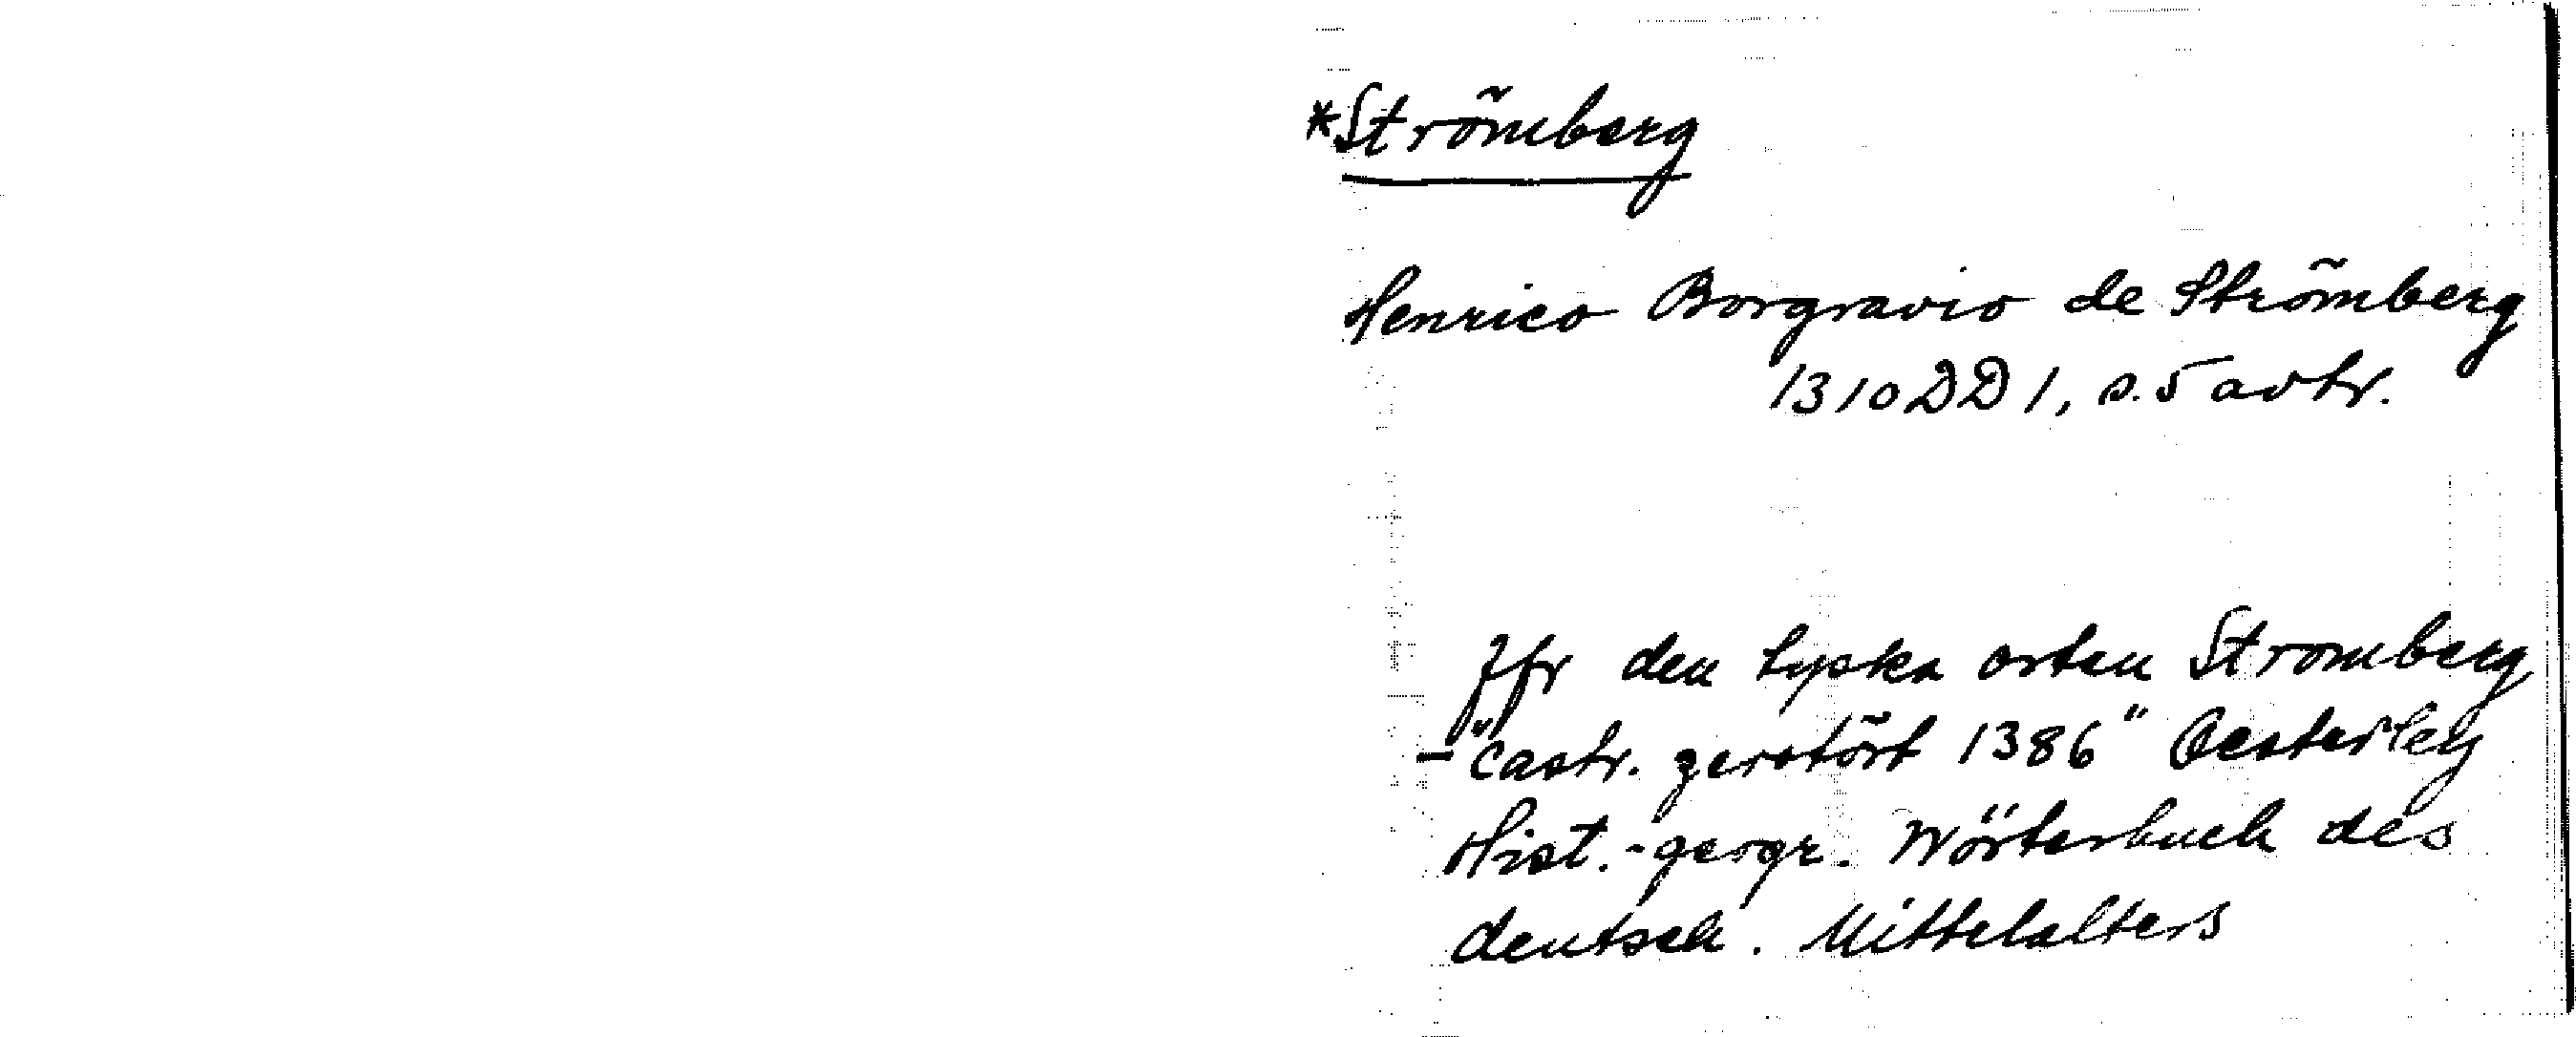 *Strömberg
Henrico Borgravio de Strömberg
1310 DD 1, s. 5 avtr.
Jfr den tyska orten Stromberg
- "castr. zerstört 1386" Oesterley
Hist.-geogr. Wörterbuch des
deutsch. Mittelalters